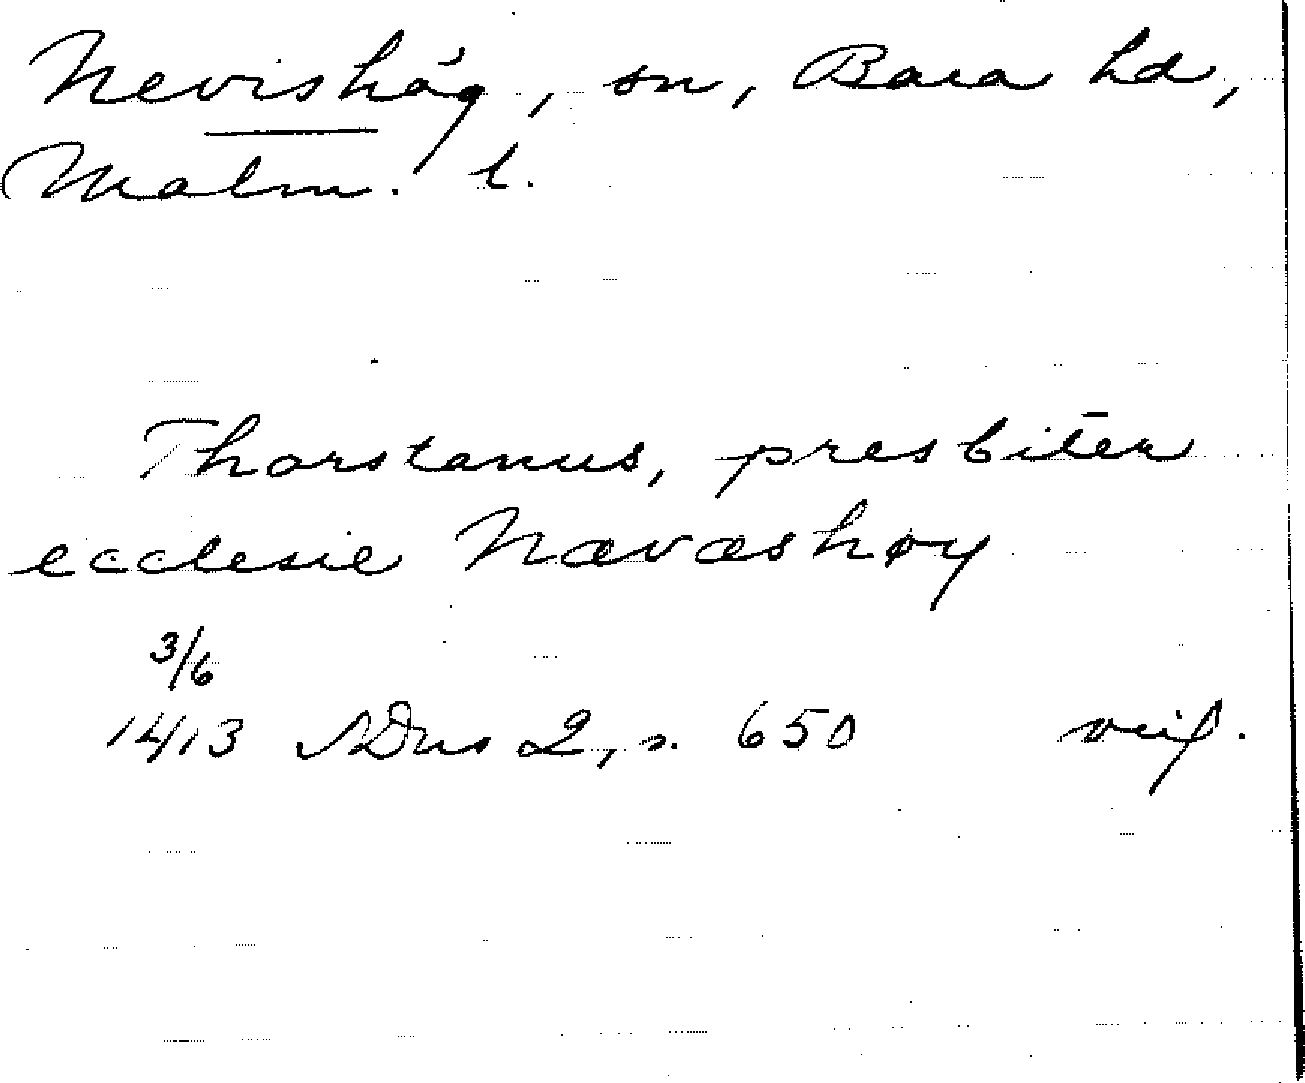 Nevishög, sn, Bara hd,
Malm. l.
Thorstanus, presbiter
ecclesie Nævæshøy
3/6
1413 SDns 2, s. 650